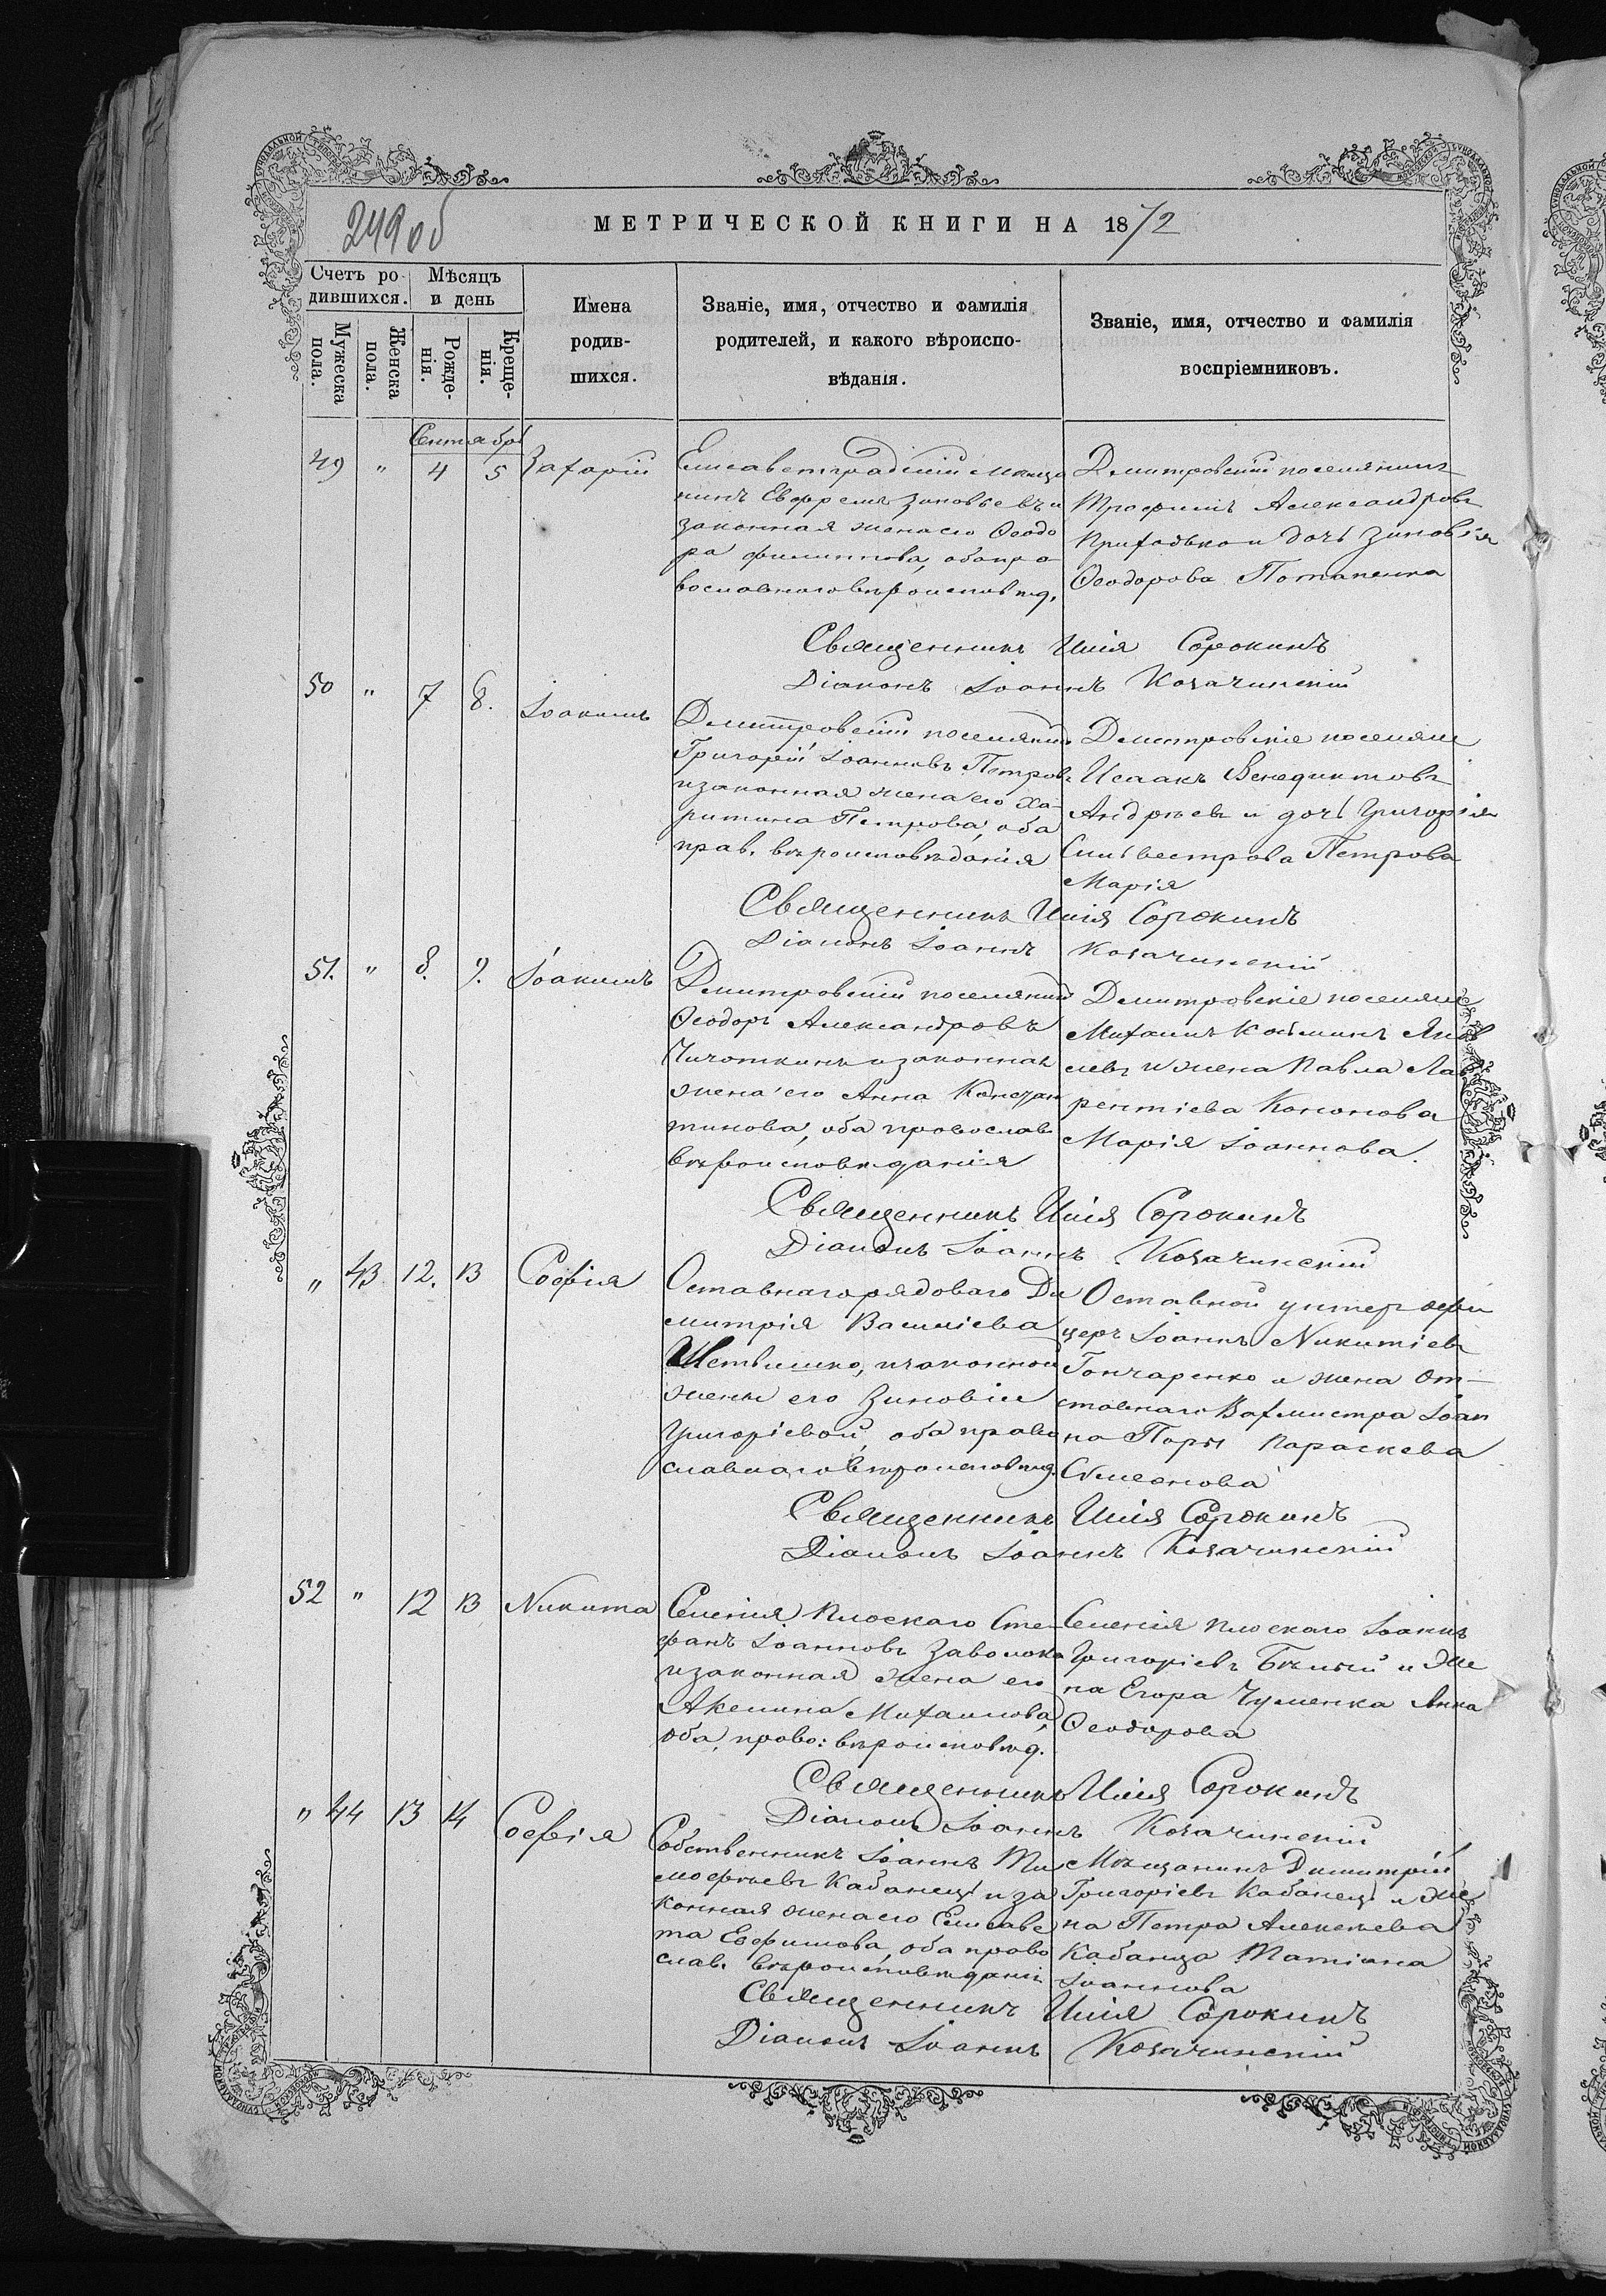 249 об
МЕТРИЧЕСКОЙ КНИГИ НА 1872
Счетъ ро-
дившихся.
Мѣсяцъ
и день
Мужеска
пола.
Женска
пола.
Рожде-
нія.
Креще-
нія.
Имена
родив-
шихся.
Званіе, имя, отчество и фамилія
родителей, и какого вѣроиспо-
вѣданія.
Званіе, имя, отчество и фамилія
воспріемниковъ.
Сентябрь
49 " 4 5 Захарій
Елисаветградскій мѣща
нинъ Ефремъ Зиновьевъ и
законная жена его Ѳеодо
ра Филиппова, оба пра
вославнаго вѣроисповѣд.
Дмитровскій поселянинъ
Трофимъ Александровъ
Приходько и дочь Зиновія
Ѳеодорова Потапенка
Священникъ Илія Сорокинъ
Діаконъ Іоаннъ Козачинскій
50 " 7 8. Іоакимъ
Дмитровскій поселянинъ
Григорій Іоанновъ Петровъ
и законная жена его Ха-
ритина Петрова, оба
прав. вѣроисповѣданія
Дмитровскіе поселяне
Исаакъ Венедиктовъ
Андреевъ и дочь Григорія
Сильвестрова Петрова
Марія
Священникъ Илія Сорокинъ
Діаконъ Іоаннъ Козачинскій
51. " 8. 9. Іоакимъ
Дмитровскій поселянинъ
Ѳеодоръ Александровъ
Чичоткинъ и законная
жена его Анна Констан
тинова, оба православ
вѣроисповѣданія
Дмитровскіе поселяне
Михаилъ Козминъ Яков
левъ и жена Павла Лав
рентіева Кононова
Марія Іоаннова.
Священникъ Илія Сорокинъ
Діаконъ Іоаннъ Козачинскій
" 43 12. 13 Софія
Оставнаго рядоваго Ди
митрія Василіева
и законной
жены его Зиновіи
Григоріевой, оба право
славнаго вѣроисповѣд.
Оставной унтер офи
церъ Іоаннъ Никитіевъ
Гончаренко и жена от-
ставнаго Вахмистра Іоан
на Поры Параскева
Симеонова
Священникъ Илія Сорокинъ
Діаконъ Іоаннъ Козачинскій
52 " 12 13 Никита
Селенія Плоскаго Сте-
фанъ Іоанновъ Заволока
и законная жена его
Акелина Михаилова,
оба, право: вѣроисповѣд.
Селенія Плоскаго Іоаннъ
Григоріевъ Бѣлый и же
на Егора Чуменка Анна
Ѳеодорова
Священникъ Илія Сорокинъ
Діаконъ Іоаннъ Козачинскій
" 44 13 14 Софія
Собственникъ Іоаннъ Ти
мофѣевъ Кабанецъ и за
конная жена его Елисаве
та Ефимова, оба право
слав. вѣроисповѣданія
Мѣщанинъ Димитрій
Григоріевъ Кабанецъ и же
на Петра Алексѣева
Кабанца Татіана
Іоаннова
Священникъ Илія Сорокинъ
Діаконъ Іоаннъ Козачинскій